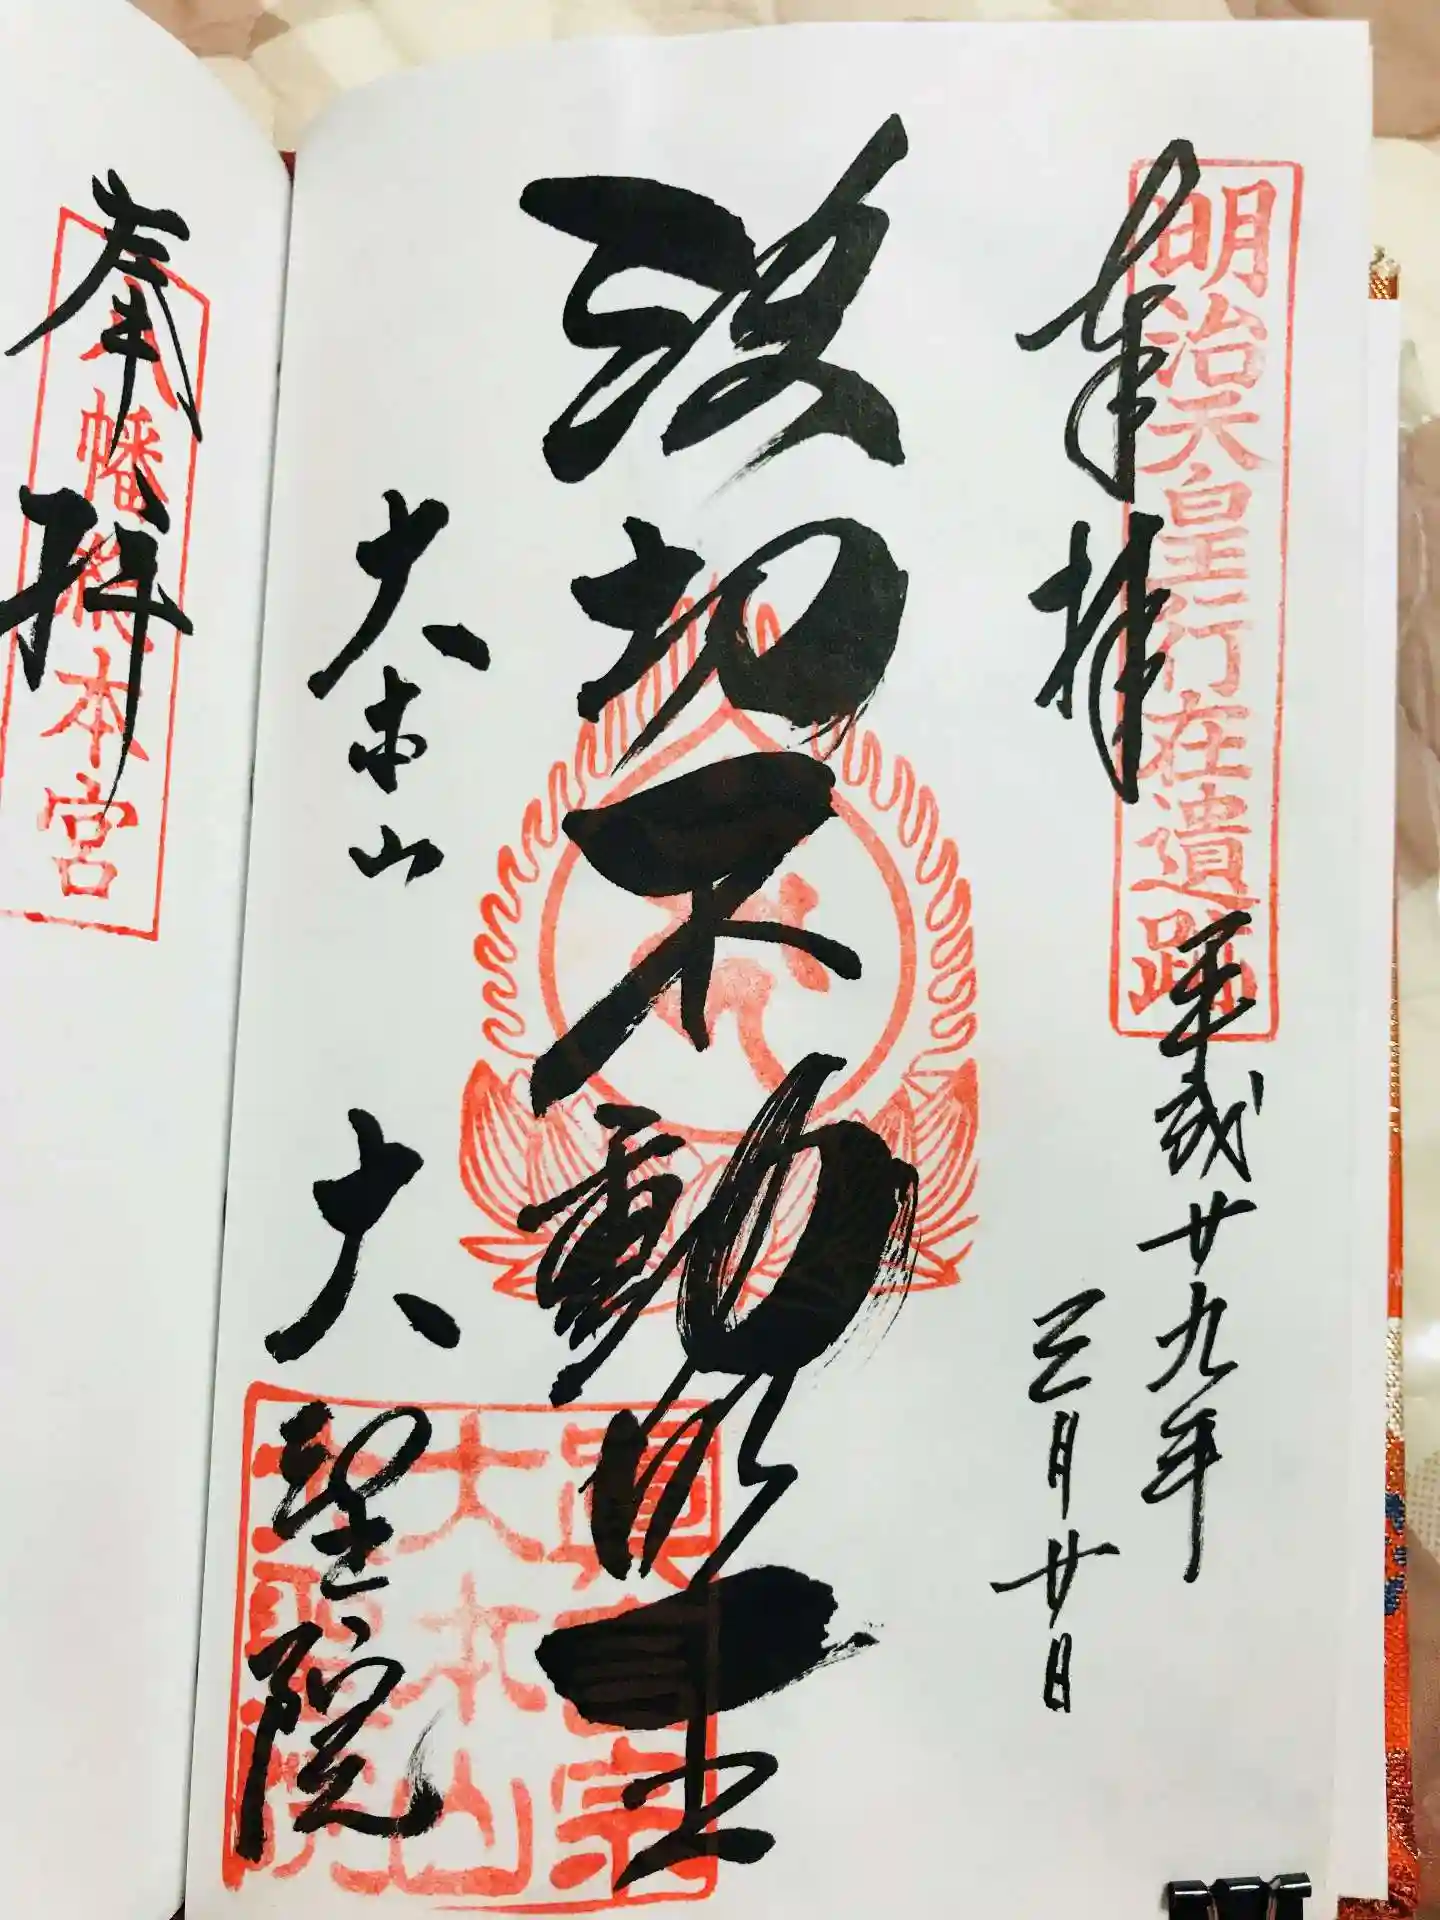 奉拝
明治天皇行在遺跡
平成廿九年
三月廿日
波切不動明王
大本山
大聖院
眞言宗
大本山
大聖院
奉拝
八幡熊本宮